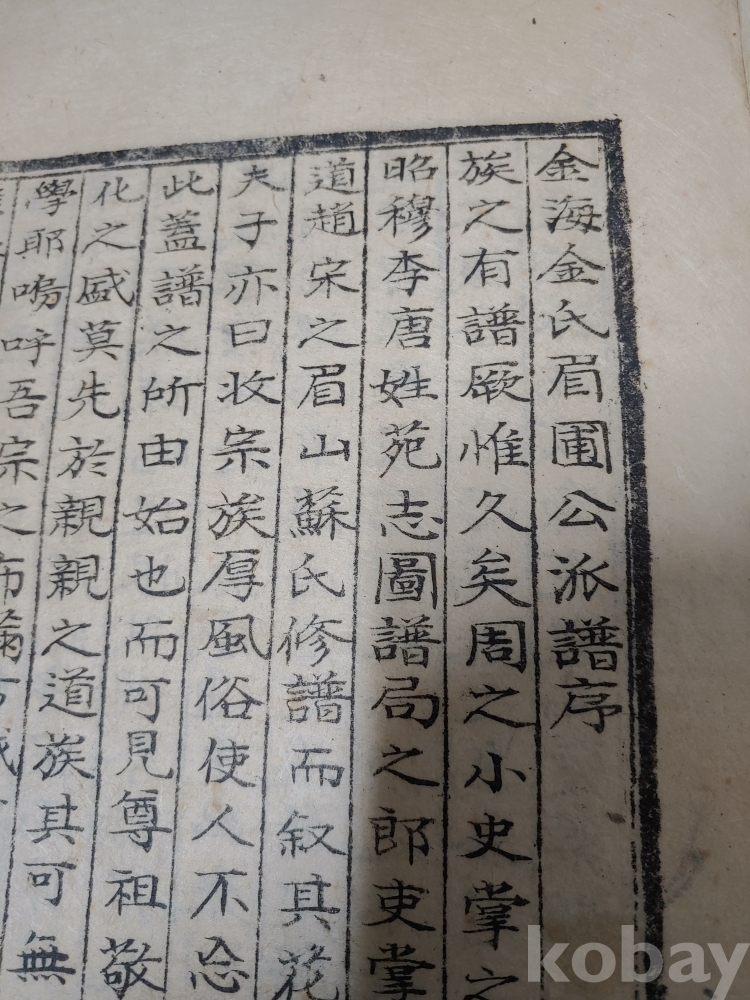 金海金氏眉圃公派譜序
族之有譜厥惟久矣周之小史掌之
昭穆李唐姓苑志圖譜局之郎吏掌
道趙宋之眉山蘇氏修譜而叙其花
夫子亦曰收宗族厚風俗使人不忘
此蓋譜之所由始也而可見尊祖敬
化之盛莫先於親親之道族其可無
學耶嗚呼吾宗之布
kobay